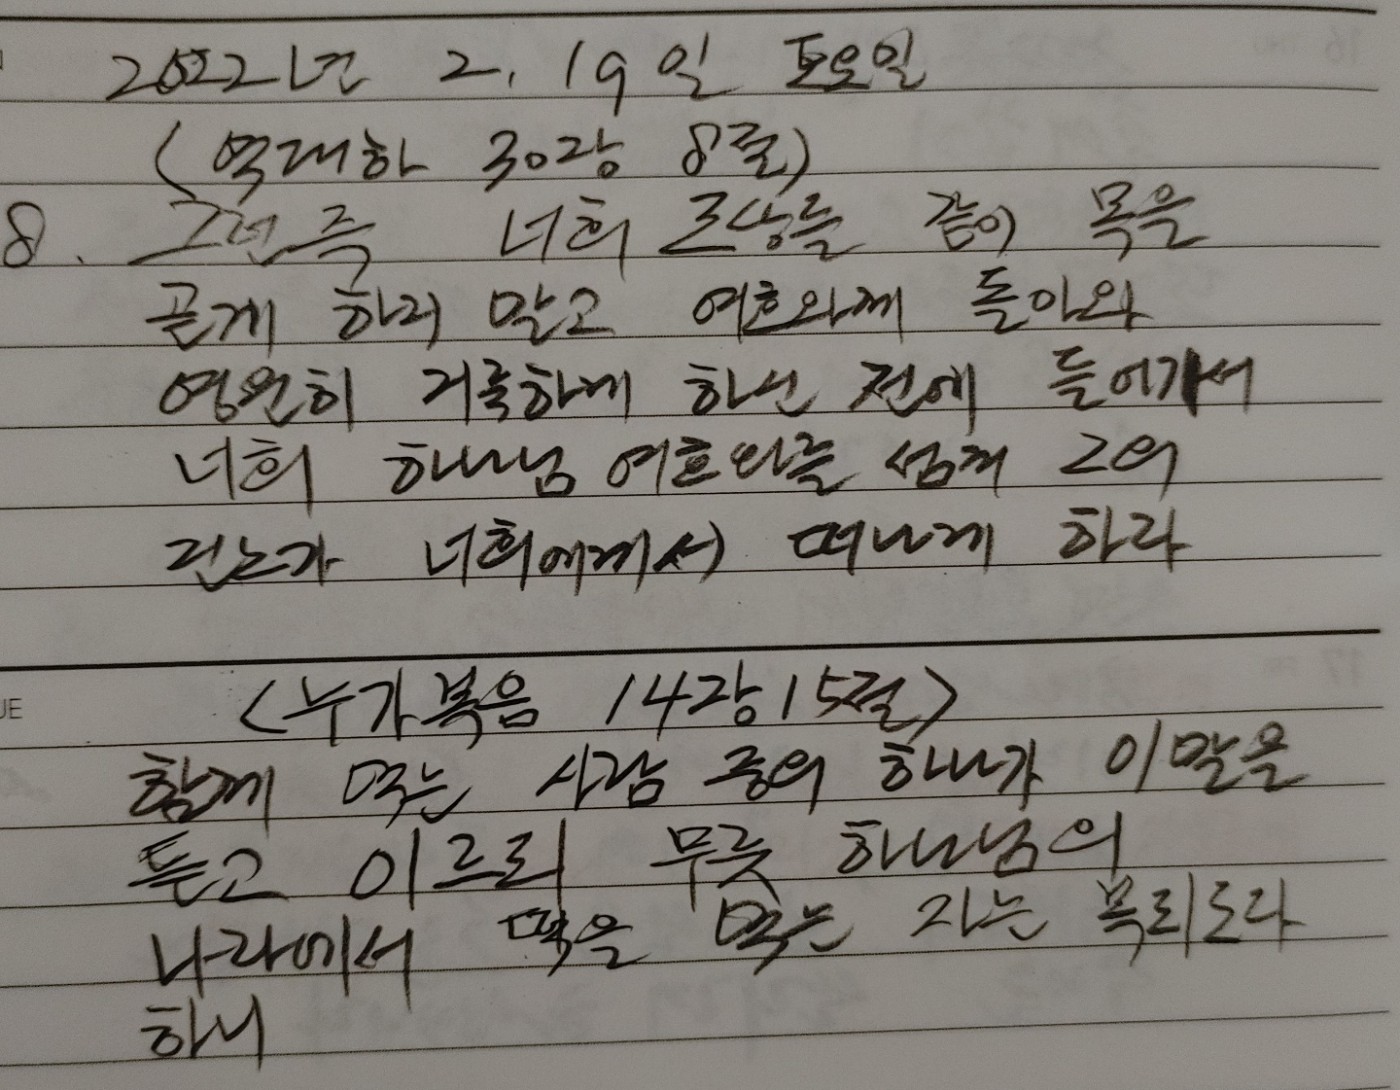 2022년 2. 19일 토요일
(역대하 30장 8절)
8. 그런즉 너희 조상들 같이 목을
곧게 하지 말고 여호와께 돌아와
영원히 거룩하게 하신 전에 들어가서
너희 하나님 여호와를 섬겨 그의
진노가 너희에게서 떠나게 하라
UE
<누가복음 14장 15절>
함께 먹는 사람 중의 하나가 이 말을
듣고 이르되 무릇 하나님의
나라에서 떡을 먹는 자는 복되도다
하니